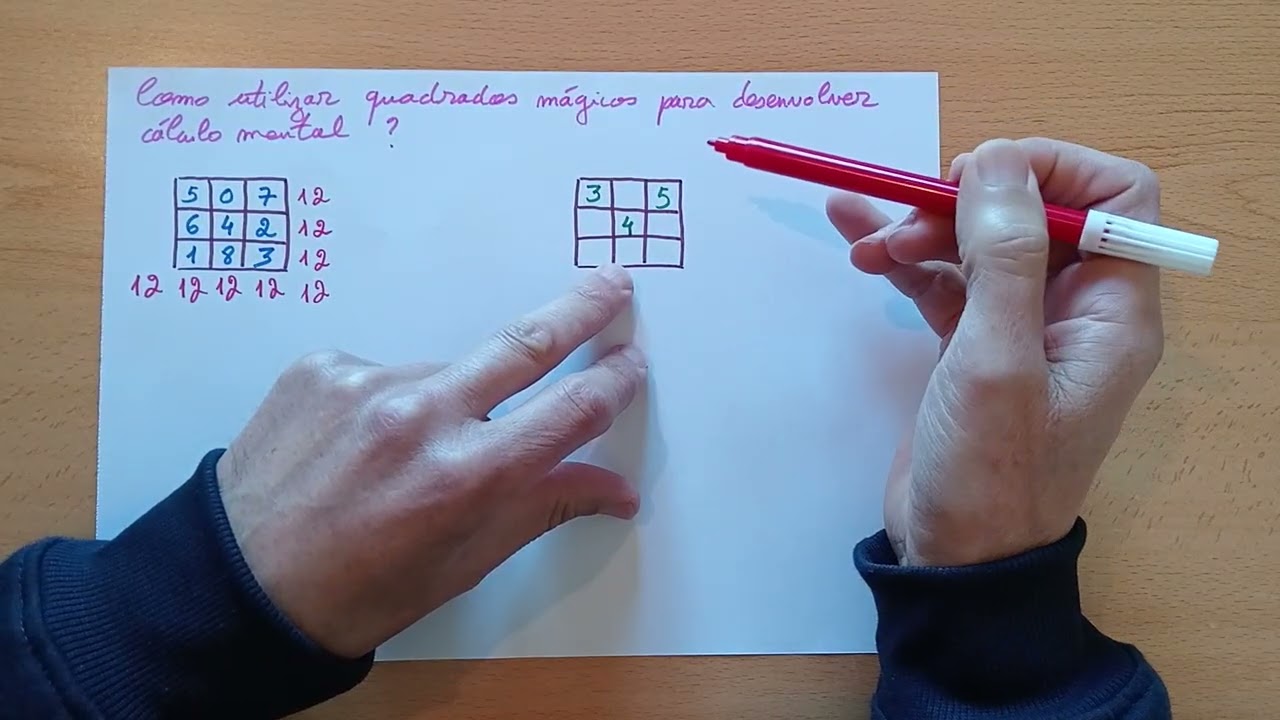 Como utilizar quadrados mágicos para desenvolver
cálculo mental ?
5 0 7 12
6 4 2 12
1 8 3 12
12 12 12 12 12
3 5
4